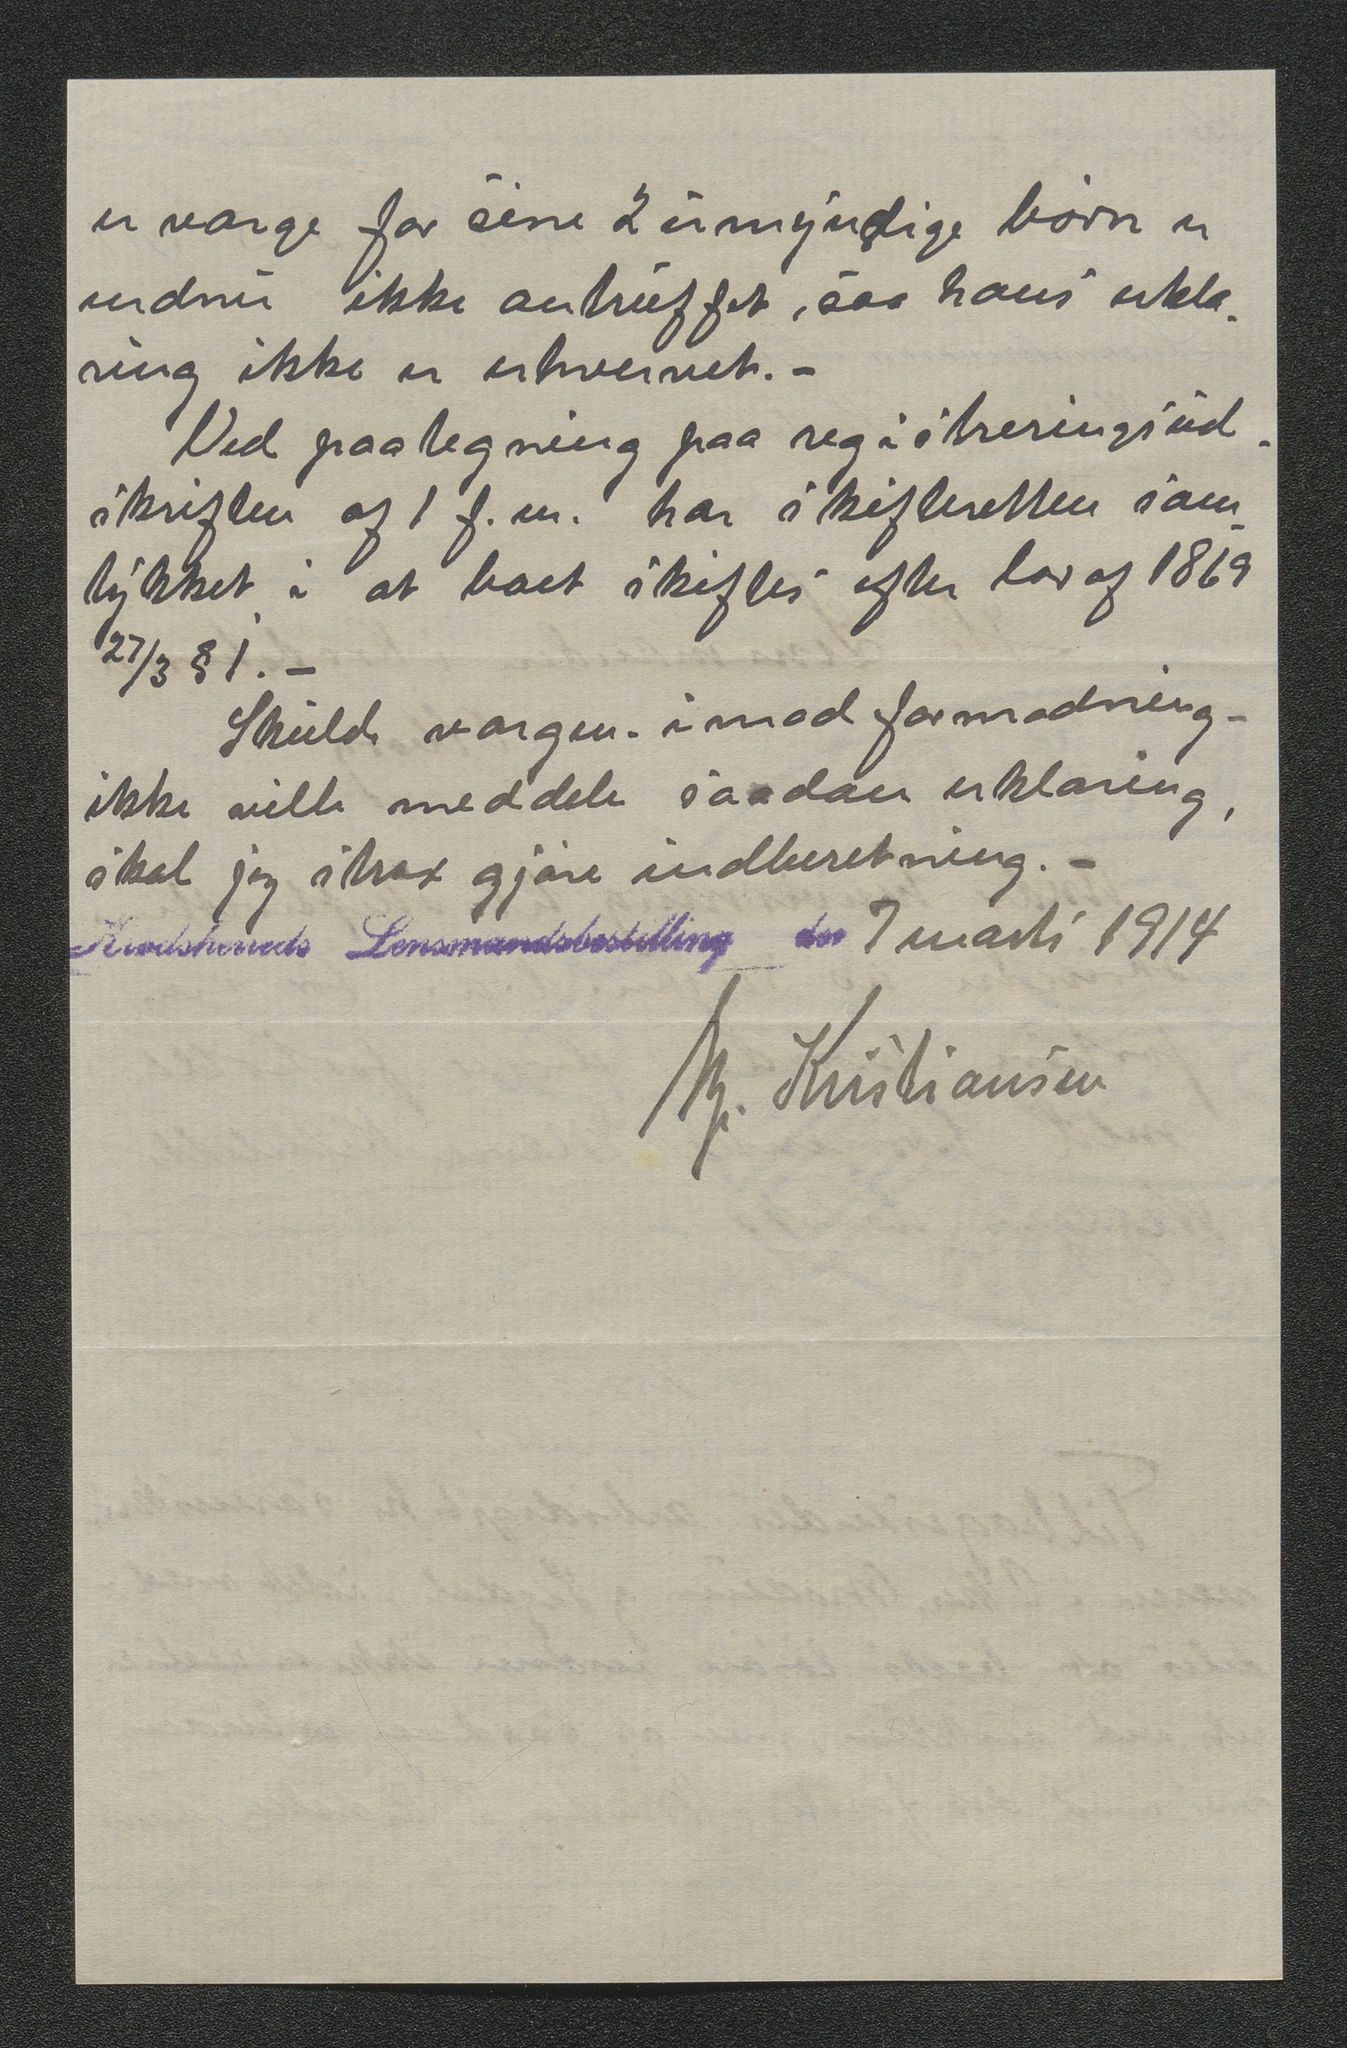 er værge for sine 2 umyndige børn er
endnu ikke antruffet, saa hans erklæ-
ring ikke er erhvervet. -
Ved paategning paa registreringsud-
skriften af 1 f.m. har skifteretten sam-
tykket i at boet skiftes efter lov af 1869
27/3 § 1. -
Skulde værgen - imod formodning -
ikke ville meddele saadan erklæring,
skal jeg strax gjøre indberetning. -
Krødsherreds Lensmandsbestilling den 7 marts 1914
Kristiansen